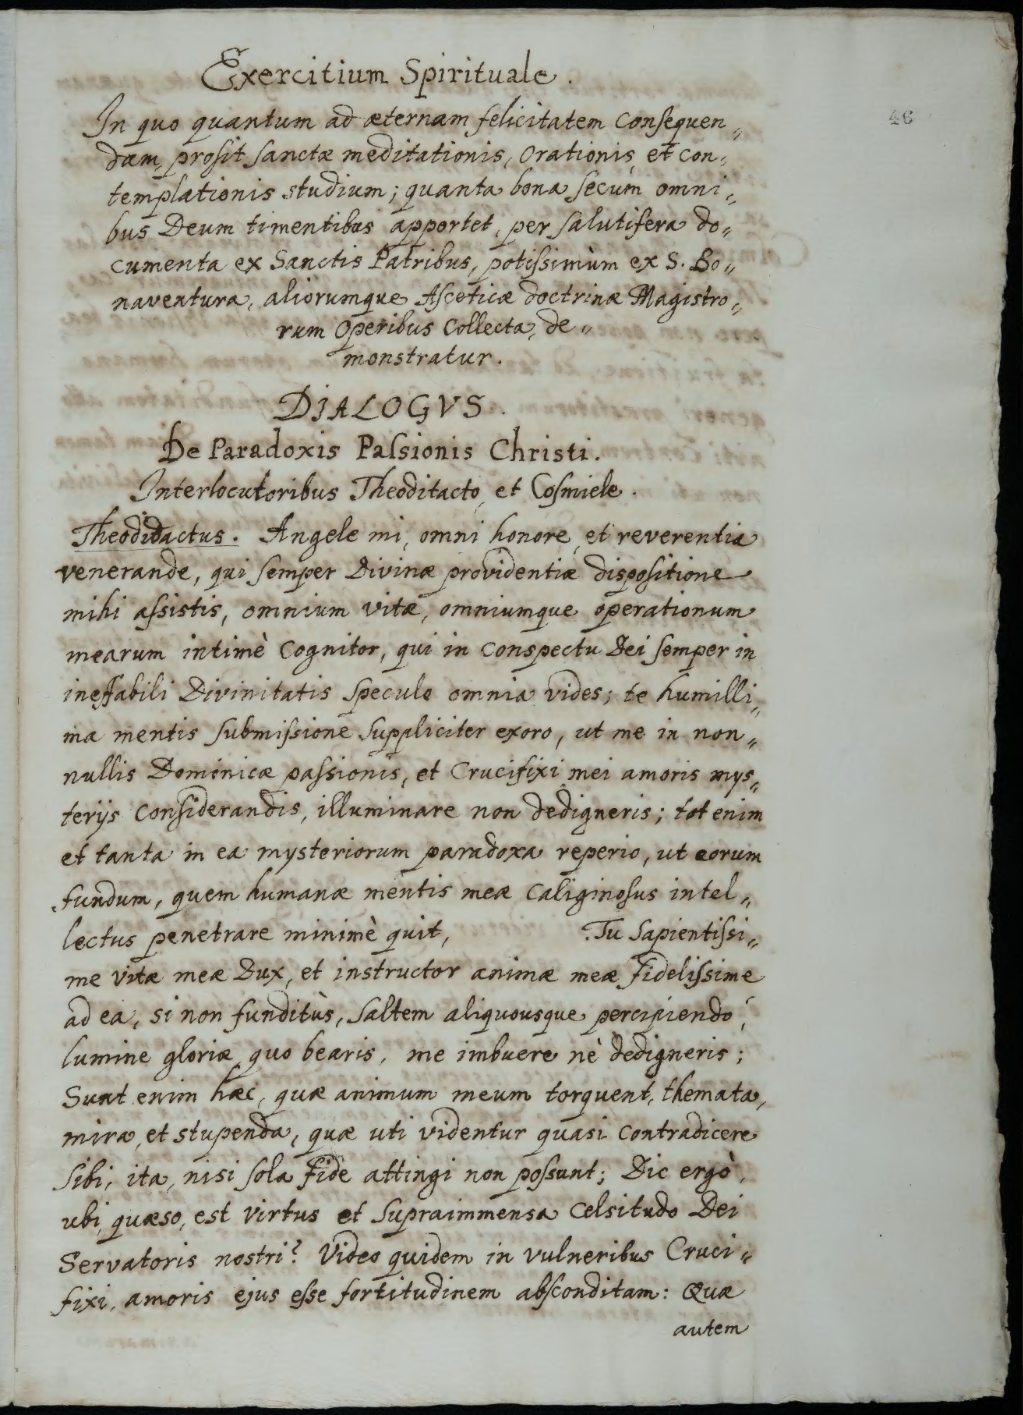 Exercitium Spirituale.
46
In quo quantum ad æternam felicitatem consequen„
dam, prosit sanctæ meditationis, Orationis, et con„
templationis studium; quanta bona secum omni„
bus Deum timentibus apportet, per salutifera do„
cumenta ex Sanctis Patribus, potissimùm ex S. Bo„
naventura, aliorumque Asceticæ doctrinæ Magistro„
rum Operibus Collecta, de„
monstratur.
DIALOGVS.
De Paradoxis Passionis Christi.
Interlocutoribus Theoditacto, et Cosmiele.
Theodidactus. Angele mi, omni honore, et reverentia
venerande, qui semper Divinæ providentiæ dispositione
mihi assistis, omnium vitæ, omniumque operationum
mearum intimè Cognitor, qui in conspectu Dei semper in
ineffabili Divinitatis speculo omnia vides; te humilli„
ma mentis submissione suppliciter exoro, ut me in non„
nullis Dominicæ passionis, et Crucifixi mei amoris mys„
terijs considerandis, illuminare non dedigneris; tot enim
et tanta in ea mysteriorum paradoxa reperio, ut eorum
fundum, quem humanæ mentis meæ caliginosus intel„
lectus penetrare minimè quit, . Tu Sapientissi„
me vitæ meæ Dux, et instructor animæ meæ fidelissime
ad ea, si non funditùs, saltem aliquousque percipiendo,
lumine gloriæ, quo bearis, me imbuere nè dedigneris;
Sunt enim hæc, quæ animum meum torquent, themata,
mira, et stupenda, quæ uti videntur quasi contradicere
sibi, ita, nisi sola fide attingi non possunt; Dic ergò,
ubi, quæso, est virtus et supraimmensa celsitudo Dei
Servatoris nostri? Video quidem in vulneribus Cruci„
fixi, amoris ejus esse fortitudinem absconditam: Quæ
autem